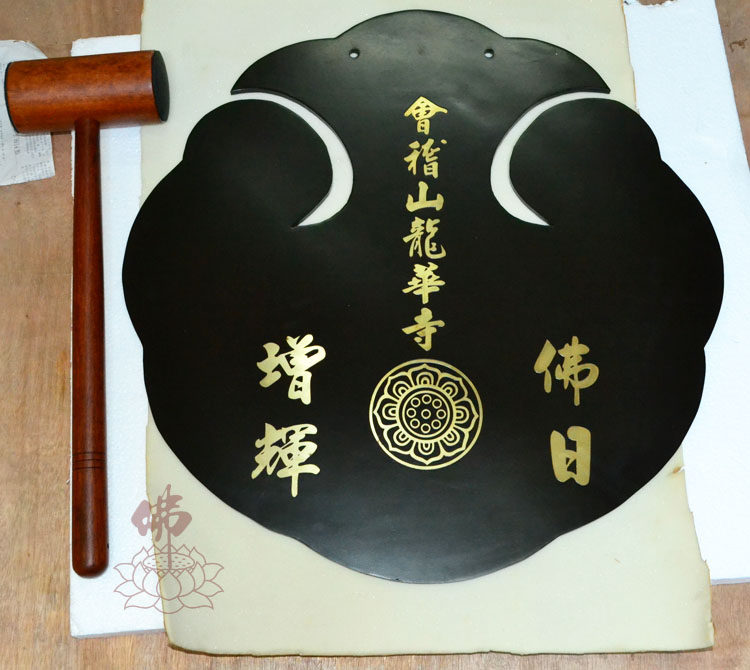 會稽山龍華寺
佛日
增輝
佛